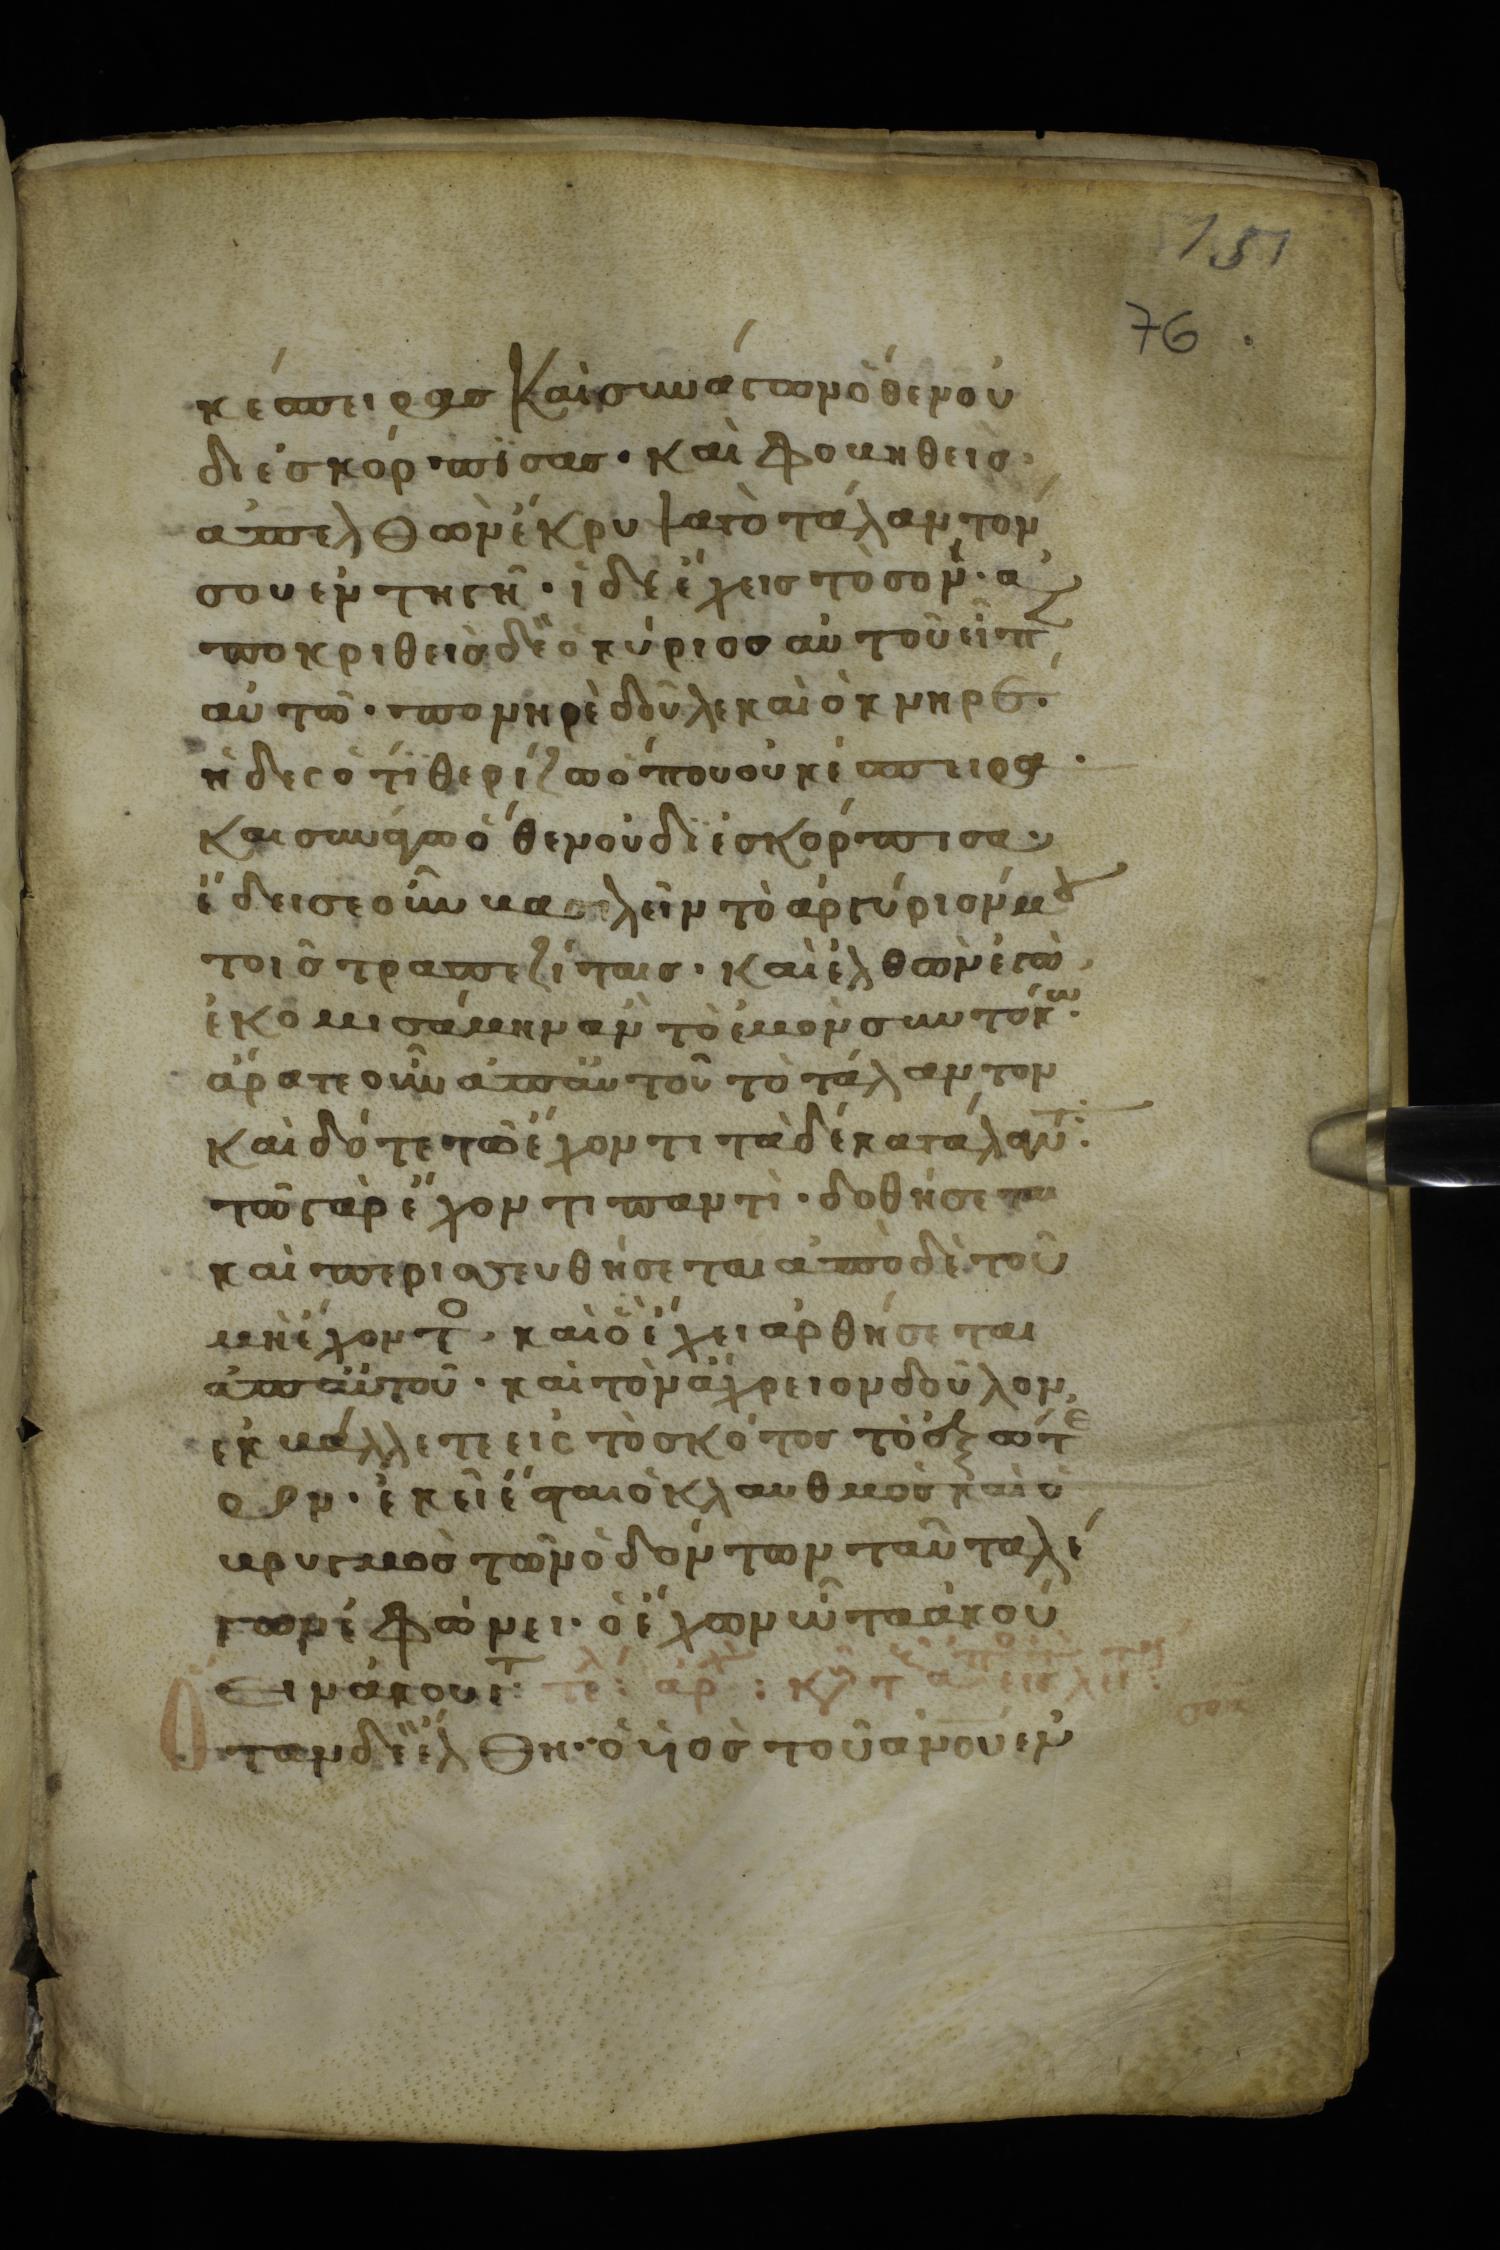 151
76
κέσπειρας καὶ συνάγων ὅθεν οὐ
διεσκόρπισας· καὶ φοβηθεὶς
ἀπελθὼν ἔκρυψα τὸ τάλαντόν
σου ἐν τῇ γῇ· ἴδε ἔχεις τὸ σόν· ἀ
ποκριθεὶς δὲ ὁ κύριος αὐτοῦ εἶπ
αὐτῷ· πονηρὲ δοῦλε καὶ ὀκνηρέ·
ᾔδεις ὅτι θερίζω ὅπου οὐκ έσπειρα·
καὶ συνάγω ὅθεν οὐ διεσκόρπισα·
ἔδει σε οὖν βαλεῖν τὸ ἀργύριόν μου
τοῖς τραπεζίταις· καὶ ἐλθὼν ἐγὼ
ἐκομισάμην ἂν τὸ ἐμὸν σὺν τόκω·
ἄρατε οὖν ἀπ' αὐτοῦ τὸ τάλαντον
καὶ δότε τῷ ἔχοντι τὰ δέκα τάλαντ:
τῷ γὰρ ἔχοντι παντὶ· δοθήσεται
καὶ περισσευθήσεται ἀπὸ δὲ τοῦ
μὴ ἔχοντο· καὶ ὃ ἔχει ἀρθήσεται
ἀπ' αὐτοῦ· καὶ τὸν ἀχρεῖον δοῦλον
ἐκβάλλετε εἰς τὸ σκότος τὸ ἐξώτε
ρον· ἐκεῖ ἔσται ὁ κλαυθμὸς καὶ ὁ
βρυγμὸς τῶν ὀδόντων ταῦτα λέ
γων ἐφώνει· ὁ ἔχων ὦτα ἀκού
ειν ἀκουέτ: τέλ: ἀρχ:
Ὅταν δὲ ἔλθῃ· ὁ υἱὸς τοῦ ἀνου ἐν